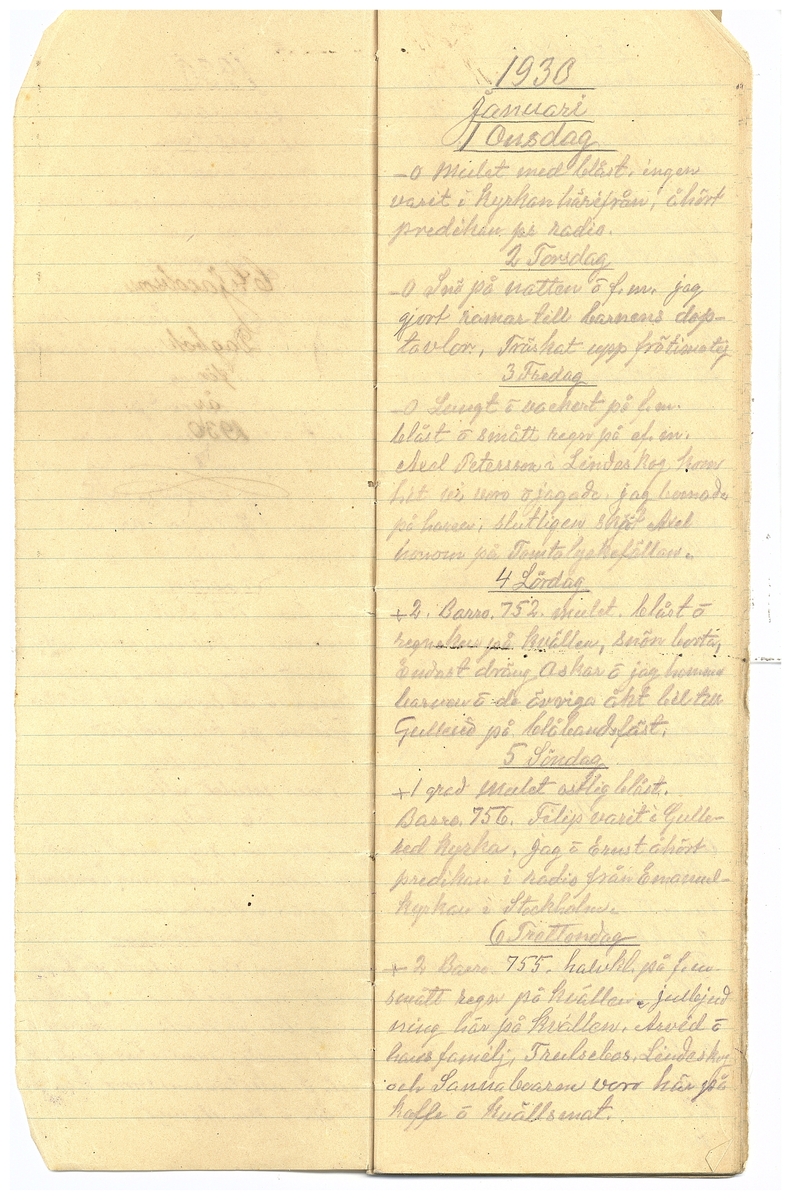 1930
Januari
1 Onsdag
–0 Mulet med blåst, ingen
varit i kyrkan härifrån, åhört
predikan pr radio.
2 Torsdag
–0 Snö på natten ō f.m. jag
gjort ramar till barnens dop-
tavlor. Tröskat upp frötimotej
3 Fredag
–0 Lungt ō vackert på f.m.
blåst ō smått regn på ef.m.
Axel Petersson i Lindeskog kom
hit vi voro o jagade. jag bomade
på haren, slutligen skjöt Axel
honom på Tomtalyckefällan.
4 Lördag
+2. Barro. 752. mulet. blåst ō
regn på kvällen, snön borta,
Endast dräng Oskar ō jag hemma
barnen ō de övriga åkt bil till
Gullered på blåbandsfäst.
5 Söndag
+1 grad Mulet ostlig blåst.
Barro. 756. Filip varit i Gulle-
red kyrka, jag ō Ernst åhört
predikan i radio från Emanuel-
kyrkan i Stockholm.
6 Trettondag
+ 2 Barro. 755. halvkl. på f.m.
smått regn på kvällen, julbjud
ning här på kvällen. Arvid ō
hans familj, Trulsebos, Lindeskog
och Sannaboaren voro här på
kaffe ō kvällsmat.